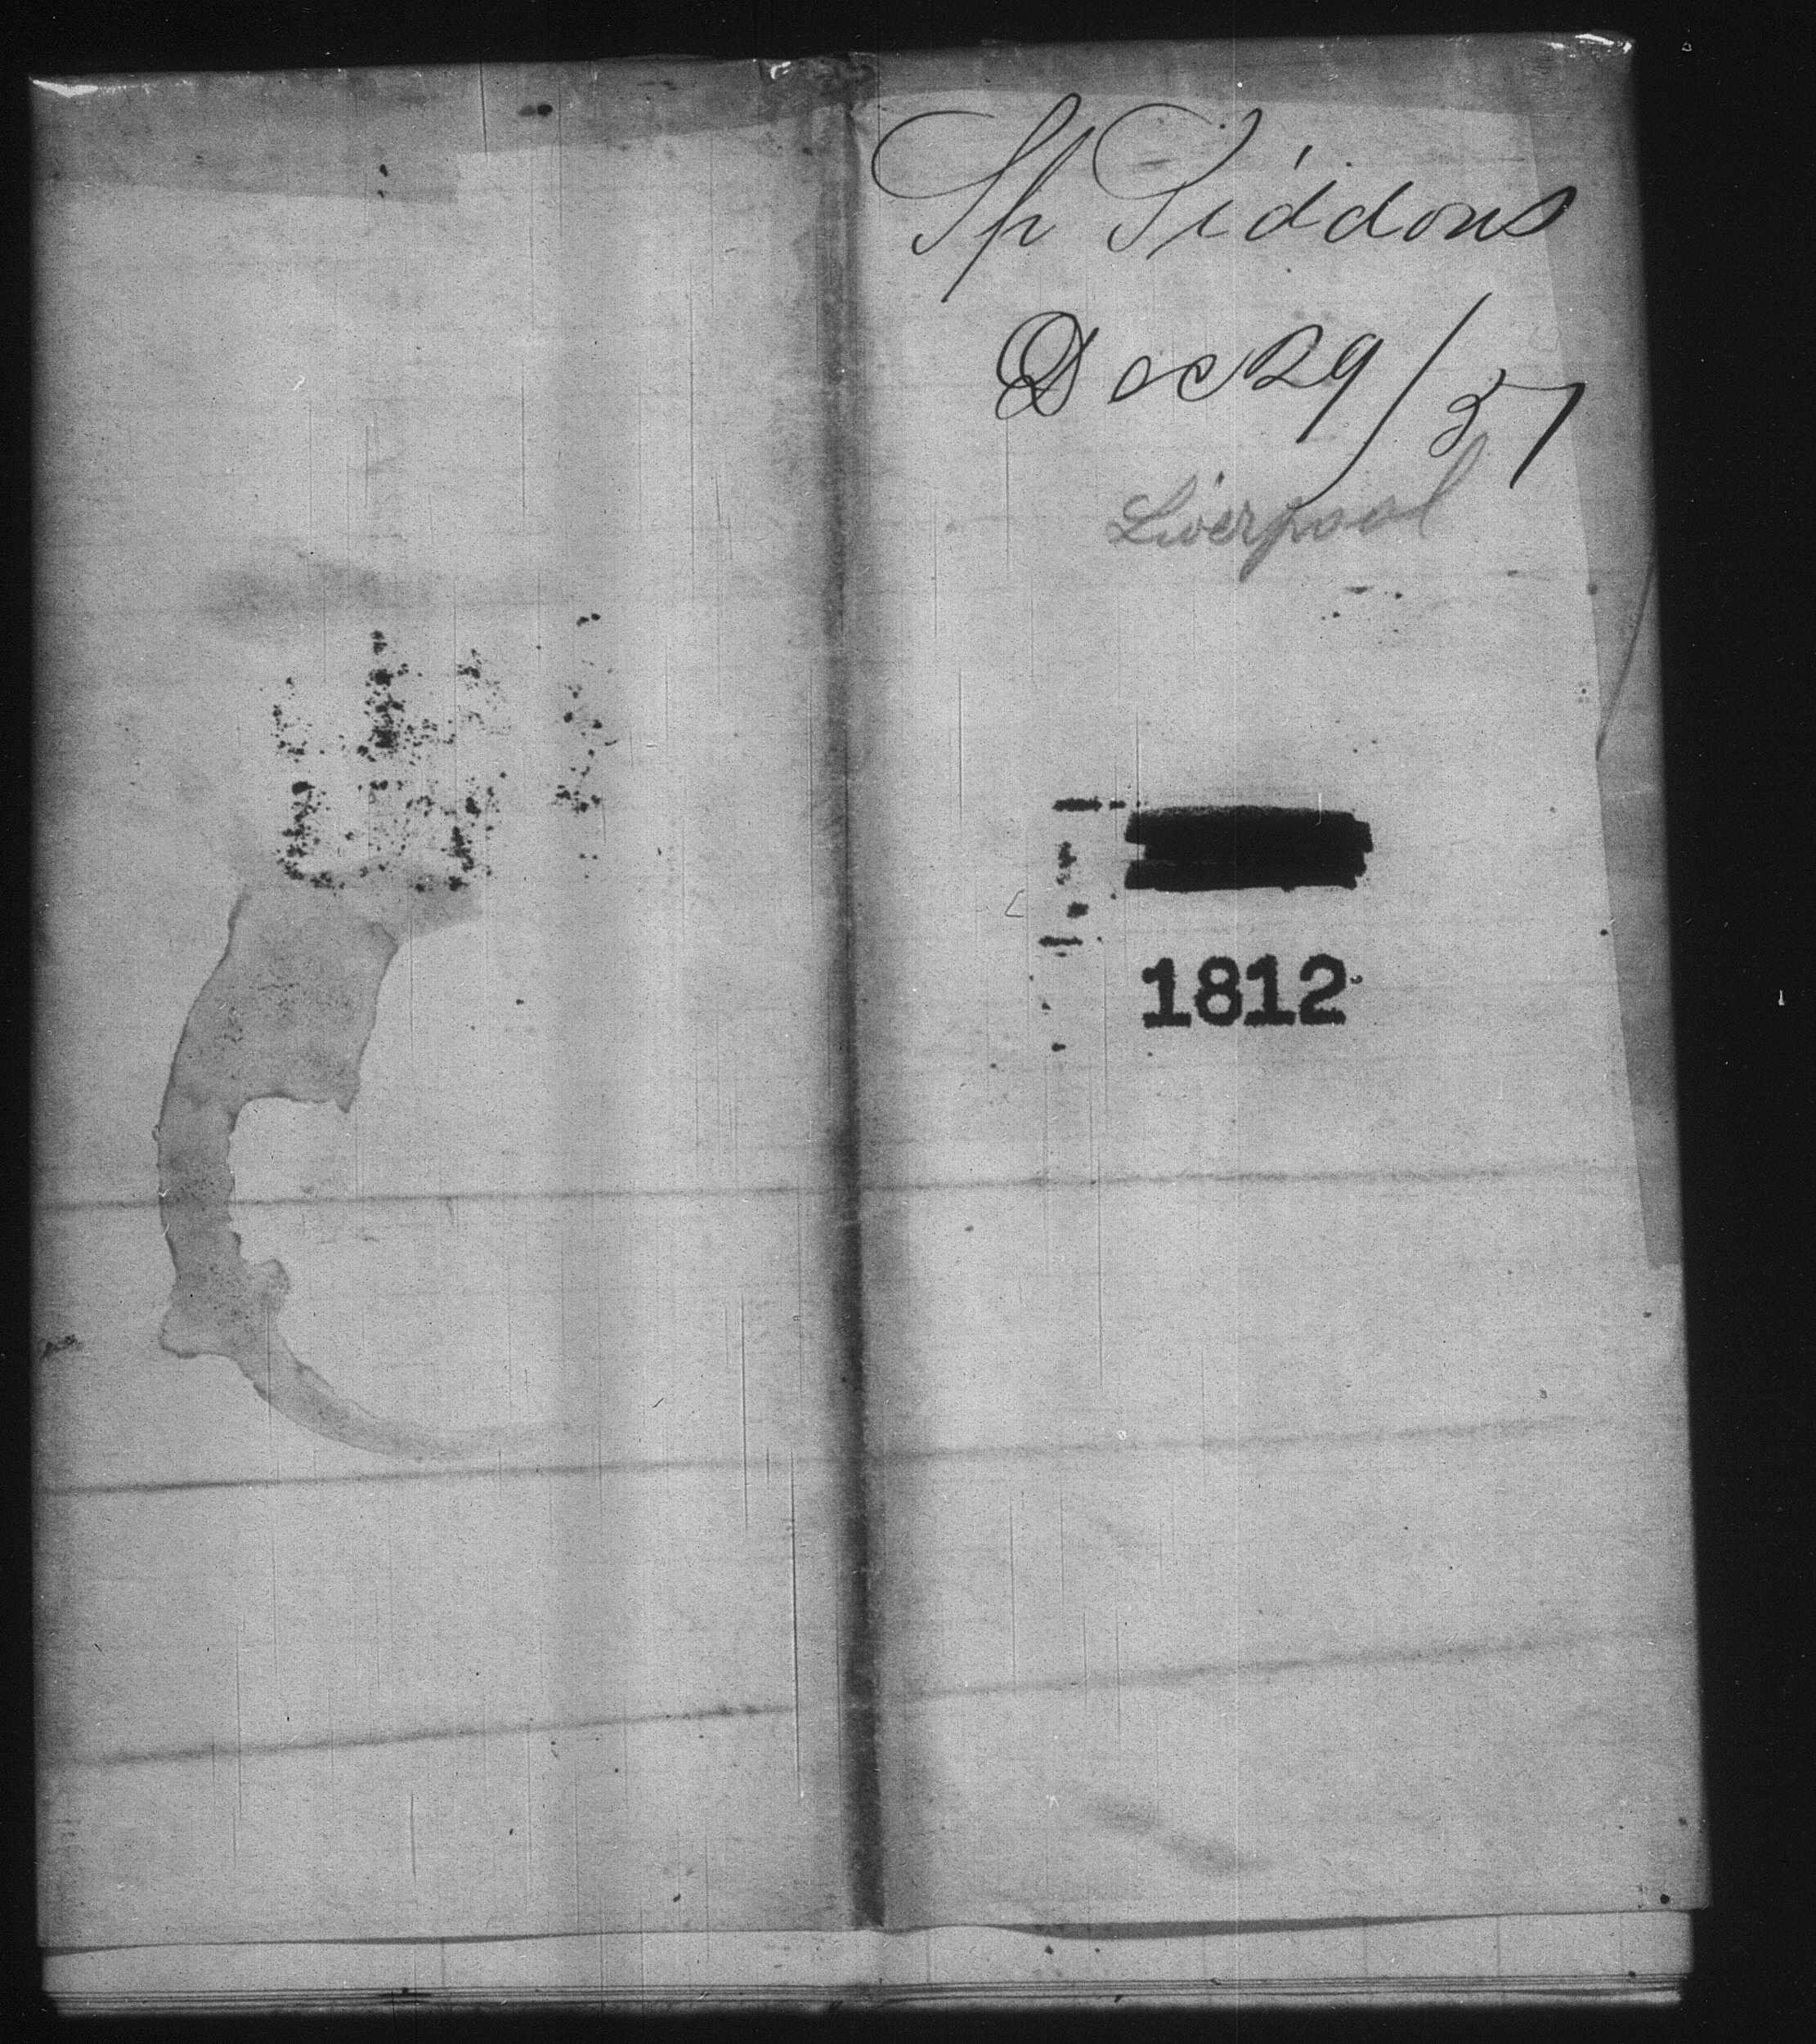 Sh Siddons
Dec 29/37
Liverpool
1812